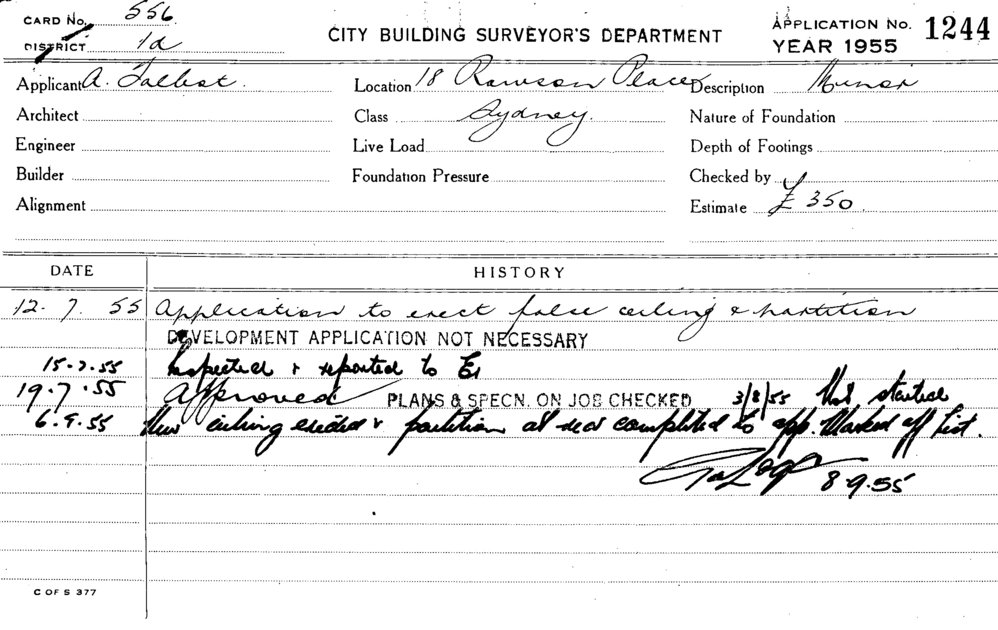 CARD No. 556
DISTRICT 1d
CITY BUILDING SURVEYOR'S DEPARTMENT
APPLICATION No. 1244
YEAR 1955
Applicant A. Talbot. Location 18 Rawson Place Description Minor
Architect Class Sydney. Nature of Foundation
Engineer Live Load Depth of Footings
Builder Foundation Pressure Checked by
Alignment Estimate £ 350.
DATE HISTORY
12. 7. 55 Application to erect false ceiling & partition
DEVELOPMENT APPLICATION NOT NECESSARY
15.7.55 Inspected & reported to
19.7.55 Approved PLANS & SPECN. ON JOB CHECKED 3/8/55 Not started
6.9.55 New ceiling erected & partition at rear completed to app. Marked off list.
8.9.55
C OF S 377